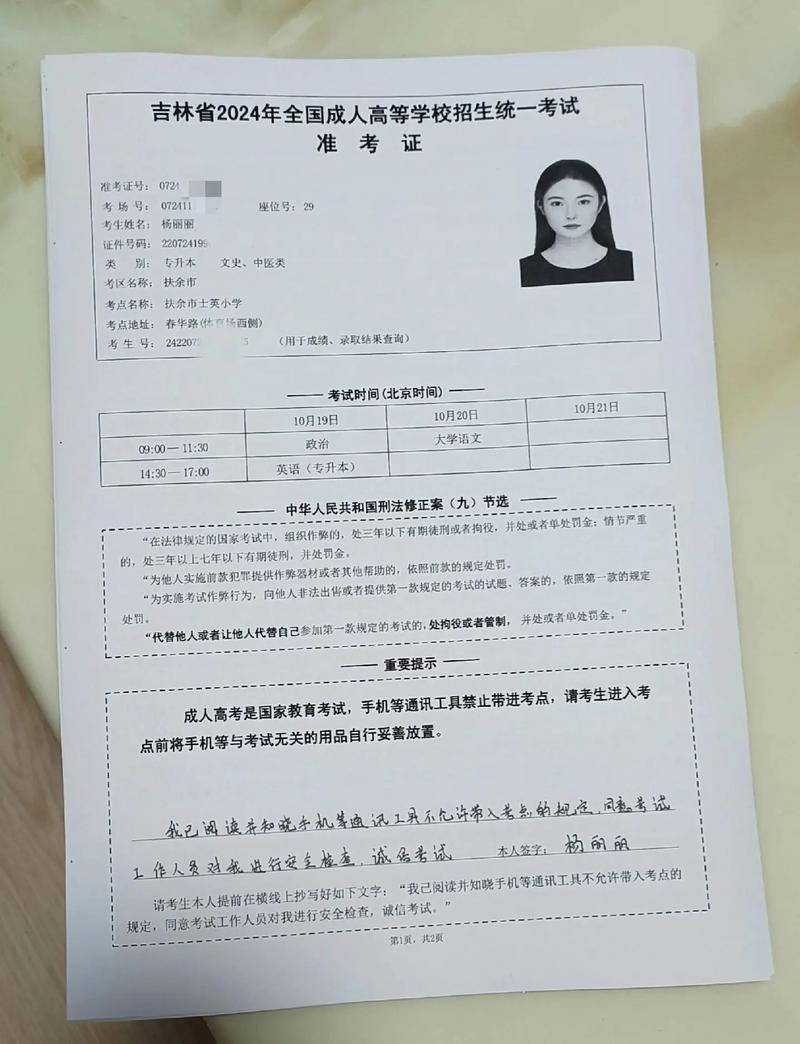 吉林省2024年全国成人高等学校招生统一考试
准 考 证
准考证号： 0724
考 场 号： 072411 座位号：29
考生姓名： 杨丽丽
证件号码： 220724199
类 别： 专升本 文史、中医类
考区名称： 扶余市
考点名称： 扶余市士英小学
考点地址： 春华路(体育场西侧)
考 生 号： 242207 5 （用于成绩、录取结果查询）
考试时间(北京时间)
10月19日 10月20日 10月21日
09:00—11:30 政治 大学语文
14:30—17:00 英语（专升本）
中华人民共和国刑法修正案（九）节选
“在法律规定的国家考试中，组织作弊的，处三年以下有期徒刑或者拘役，并处或者单处罚金；情节严重
的，处三年以上七年以下有期徒刑，并处罚金。
“为他人实施前款犯罪提供作弊器材或者其他帮助的，依照前款的规定处罚。
“为实施考试作弊行为，向他人非法出售或者提供第一款规定的考试的试题、答案的，依照第一款的规定
处罚。
“代替他人或者让他人代替自己参加第一款规定的考试的，处拘役或者管制，并处或者单处罚金。”
重要提示
成人高考是国家教育考试，手机等通讯工具禁止带进考点，请考生进入考
点前将手机等与考试无关的用品自行妥善放置。
我已阅读并知晓手机等通讯工具不允许带入考点的规定，同意考试
工作人员对我进行安全检查，诚信考试 本人签字： 杨丽丽
请考生本人提前在横线上抄写好如下文字：“我已阅读并知晓手机等通讯工具不允许带入考点的
规定，同意考试工作人员对我进行安全检查，诚信考试。”
第1页，共2页